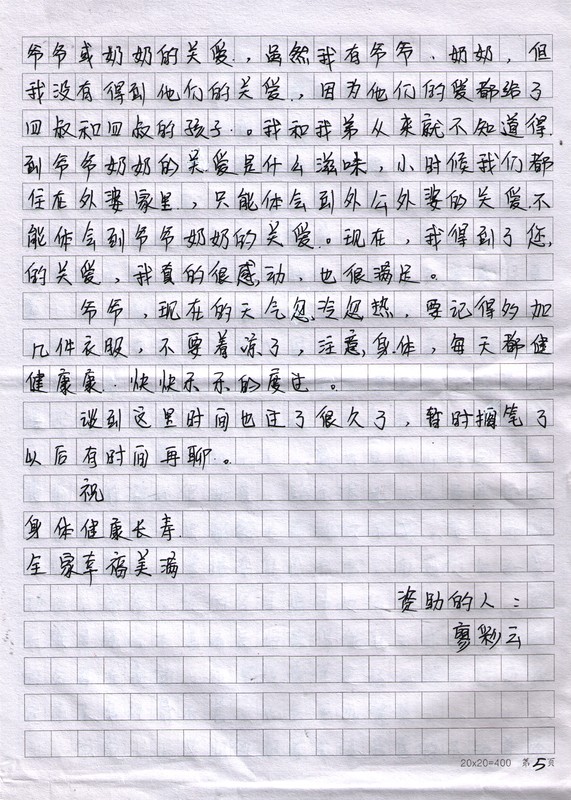 爷爷或奶奶的关爱，虽然我有爷爷、奶奶，但
我没有得到他们的关爱，因为他们的爱都给了
四叔和四叔的孩子。我和我弟从来就不知道得
到爷爷奶奶的关爱是什么滋味，小时候我们都
住在外婆家里，只能体会到外公外婆的关爱不
能体会到爷爷奶奶的关爱。现在，我得到了您，
的关爱，我真的很感动，也很满足。
爷爷，现在的天气忽冷忽热，要记得多加
几件衣服，不要着凉了，注意身体，每天都健
健康康、快快乐乐的度过。
谈到这里时间也过了很久了，暂时搁笔了
以后有时间再聊。
祝
身体健康长寿
全家幸福美满
资助的人：
廖彩云
20x20=400 第5页